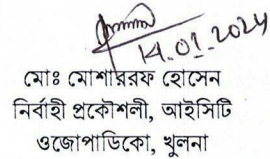 14.01.2024
মোঃ মোশাররফ হোসেন
নির্বাহী প্রকৌশলী, আইসিটি
ওজোপাডিকো, খুলনা